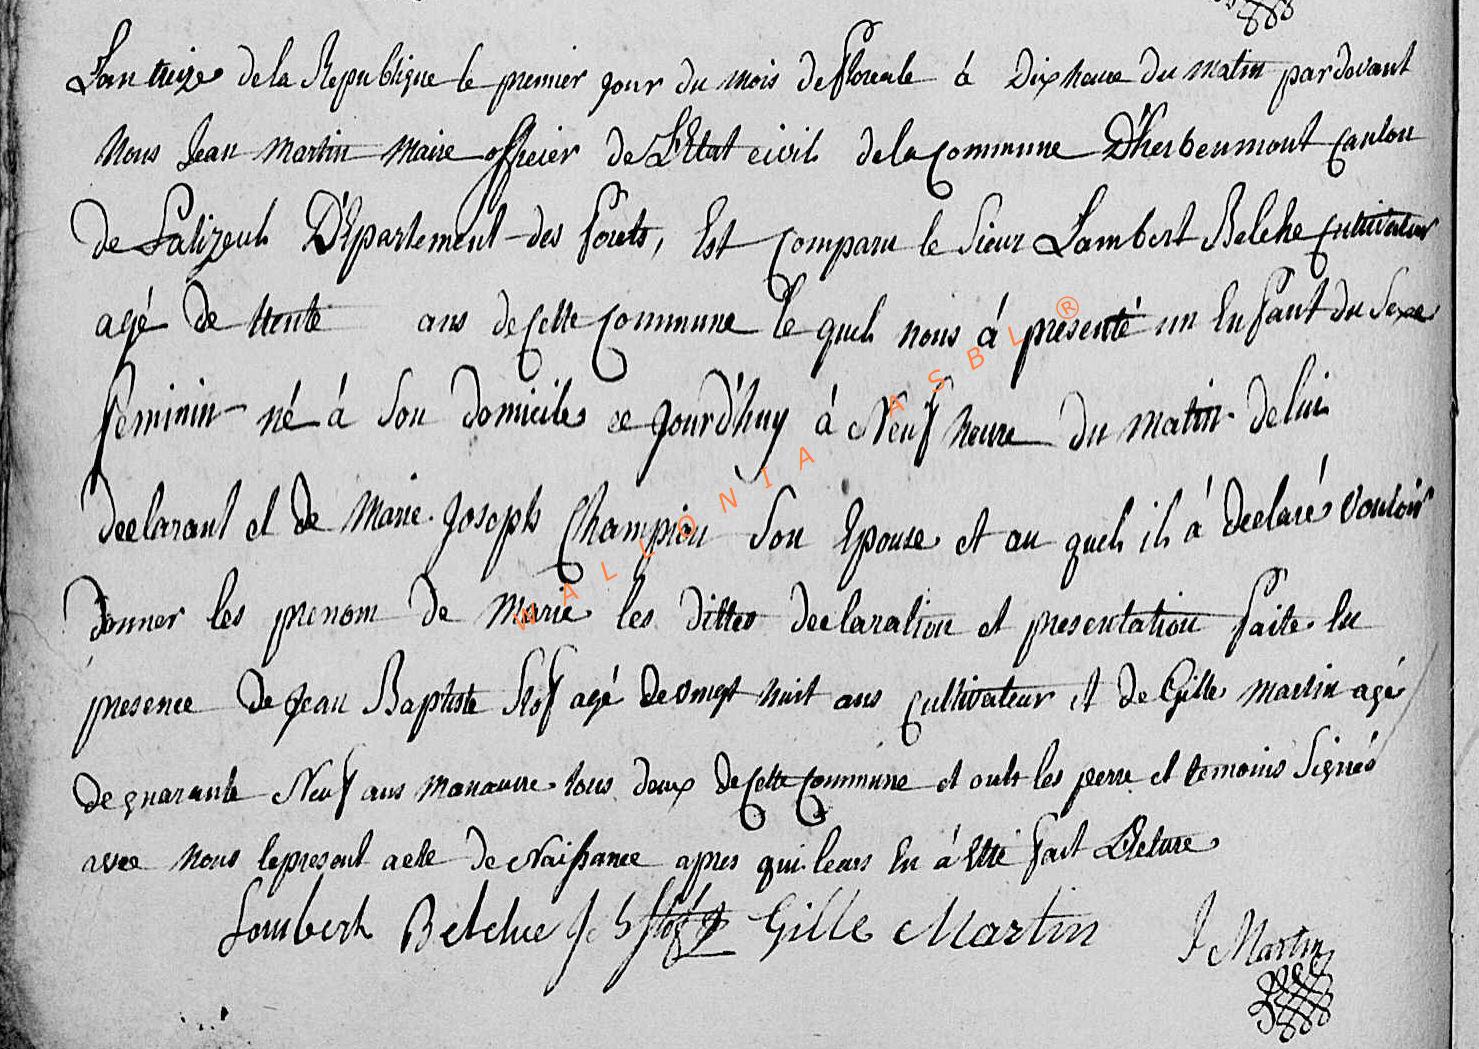 L'an treize de la Republique le premier jour du mois de floreale à Dix heure du matin pardevant
Nous Jean Martin Maire officier de L'Etat civil de la Commune D'herbeumont canton
de Palizeul D'Epartement des forets, Est comparu le Sieur Lambert Belche Cultivateur
agé de trente ans de Cette Commune le quel nous à presenté un Enfant du Sexe
feminin né à Son domicile ce Jourd'huy à Neuf heure du matin de lui
declarant et de Marie Joseph Champion Son Epouse et au quel il à declaré vouloir
donner les prenom de Marie les dittes declaration et presentation faite En
presence de Jean Baptiste Stof agé de vingt huit ans cultivateur et de Gille Martin agé
de quarante Neuf ans manœuvre tous deux de Cette Commune et ont les perre et temoins Signés
avec Nous le present acte de Naissance apres qui leurs En à Etté fait Lecture
Lambert Belche J b Stof Gille Martin J Martin
WALLONIA ASBL ®